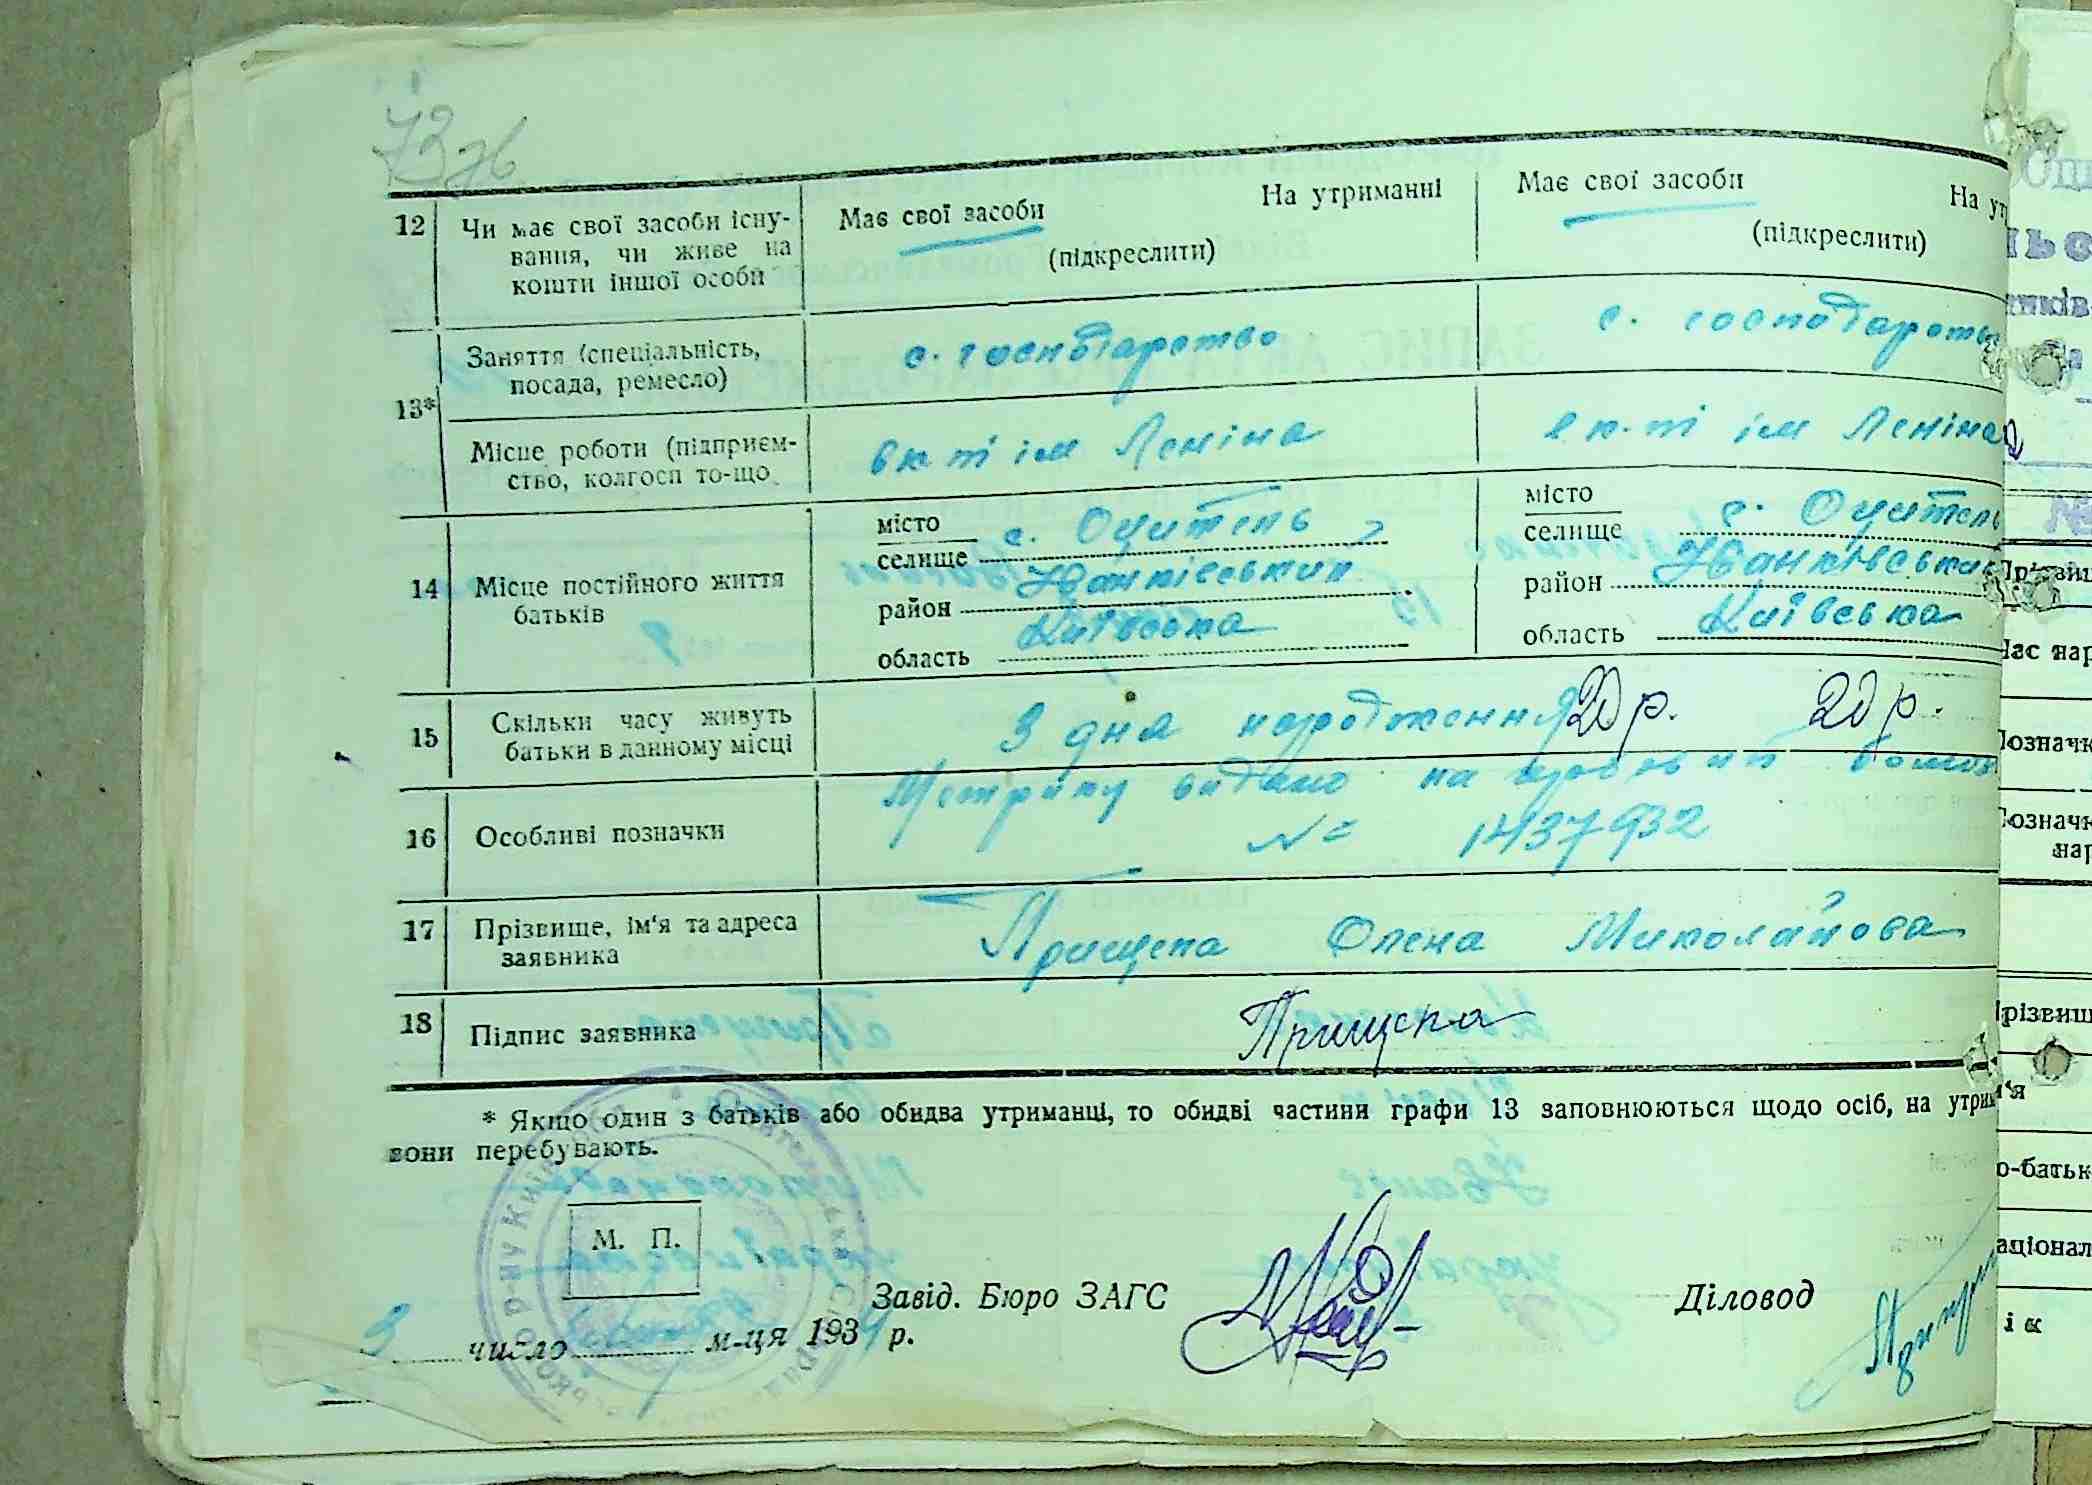 73 зв
12 Чи має свої засоби існу-
вання, чи живе на
кошти іншої особи
Має свої засоби На утриманні
(підкреслити)
Має свої засоби На ут
(підкреслити)
13* Заняття (спеціальність,
посада, ремесло)
с. господарство
с. господарство
Місце роботи (підприєм-
ство, колгосп то-що
в к-ті ім Леніна
в к-ті ім Леніна
14 Місце постійного життя
батьків
місто
селище с. Оцитель
район Іванківський
область Київська
місто
селище с. Оцитель
район Іванківський
область Київська
15 Скільки часу живуть
батьки в данному місці
З дня народження 20 р. 20 р.
16 Особливі позначки
Метрику видано на
№ 1437932
17 Прізвище, ім'я та адреса
заявника
Прищепа Олена Миколайова
18 Підпис заявника
Прищепа
* Якщо один з батьків або обидва утриманці, то обидві частини графи 13 заповнюються щодо осіб, на утрим
вони перебувають.
М. П.
Завід. Бюро ЗАГС
Діловод
3 число м-ця 193 р.